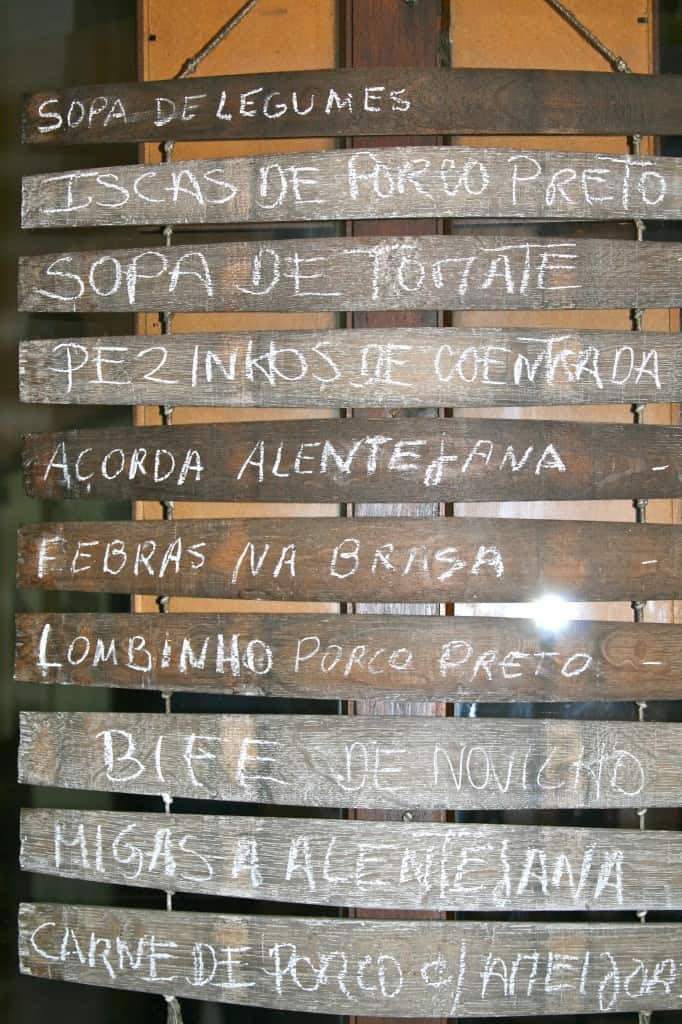 SOPA DE LEGUMES
ISCAS DE PORCO PRETO
SOPA DE TOMATE
PEZINHOS DE COENTRADA
AÇORDA ALENTEJANA -
FEBRAS NA BRASA -
LOMBINHO PORCO PRETO -
BIFE DE NOVILHO
MIGAS A ALENTEJANA
CARNE DE PORCO C/